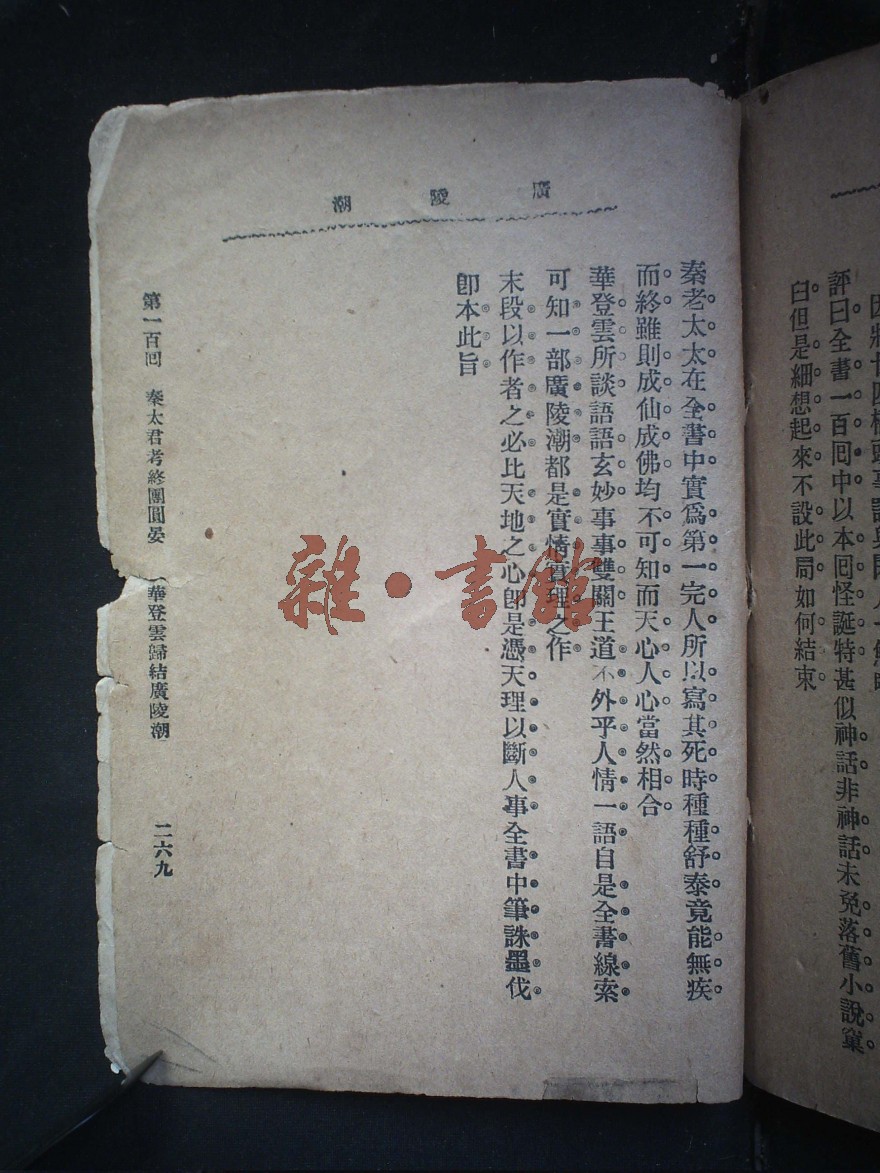 評曰全書一百囘中以本囘怪誕特甚似神話非神話未免落舊小說窠
臼但是細想起來不設此局如何結束
廣陵潮
秦老太太在全書中實爲第一完人所以寫其死時種種舒泰竟能無疾
而終雖則成仙成佛均不可知而天心人心當然相合
華登雲所談語語玄妙事事雙關王道不外乎人情一語自是全書線索
可知一部廣陵潮都是實情實理之作
末段以作者之必比天地之心卽是憑天理以斷人事全書中筆誅墨伐
卽本此旨
第一百囘 秦太君考終團圓晏 華登雲歸結廣陵潮
二六九
雜·書館